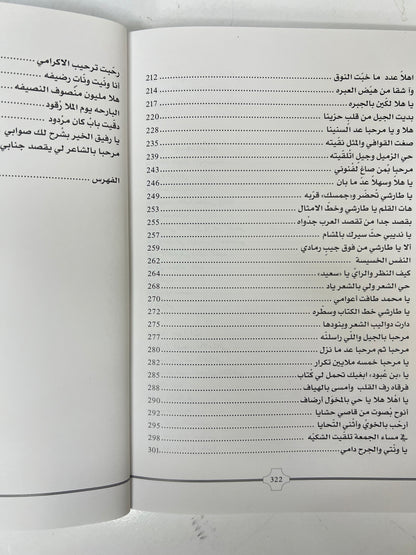 اهلاً عدد ما خبّت النوق 212
وا شقا من هيّض العبره 214
يا هلا لكين بالجيره 217
بديت الجيل من قلبٍ حزينا 220
يا هلا و يا مرحبا عد السنينا 228
صغت القوافي والمثل نقيته 235
حي الزميل وجيل اتلقيته 239
مرحبا بمن صاغ لفنوني 243
يا هلا وسهلا عد ما بان 246
يا طارشي تحضّر و«جمسك» قرّبه 249
هات القلم يا طارشي وخط الامثال 253
يقصد جدا من تقصد العرب جدواه 255
يا نديبي حث سيرك بالمشام 257
ألا يا طارشي من فوق جيب رمادي 259
النفس الخسيسة 262
كيف النظر والراي يا «سعيد» 264
حي الشعر ولي بالشعر ياد 268
يا محمد طافت أعوامي 270
يا طارشي خط الكتاب وسطّره 272
دارت دواليب الشعر وبنودها 275
مرحبا بالجيل واللّي راسلته 277
مرحبا ثم مرحبا عد ما نزل 280
يا مرحبا خمسه ملايين تكرار 282
يا «بن عبود» ابغيك تحمل لي كتاب 285
فرقاه رف القلب وأمسى بالهياف 288
يا اهلا هلا يا حي بالمخول أرضاف 290
أنوح بصوت من قاصي حشايا 291
أرحّب بالخوي وأثني التحايا 295
في مساء الجمعة تلقيت الشكيّه 298
يا ونّتي والجرح دامي 301
322
رحبت ترحيب الاكرامي
أنا ونّيت ونّات رضيفه
هلا مليون منصوف النصيفه
البارحه يوم الملا رقود
دقيت باب كان مردود
يا رفيق الخير يشرح لك صوابي
مرحبا بالشاعر لي يقصد جنابي
الفهرس